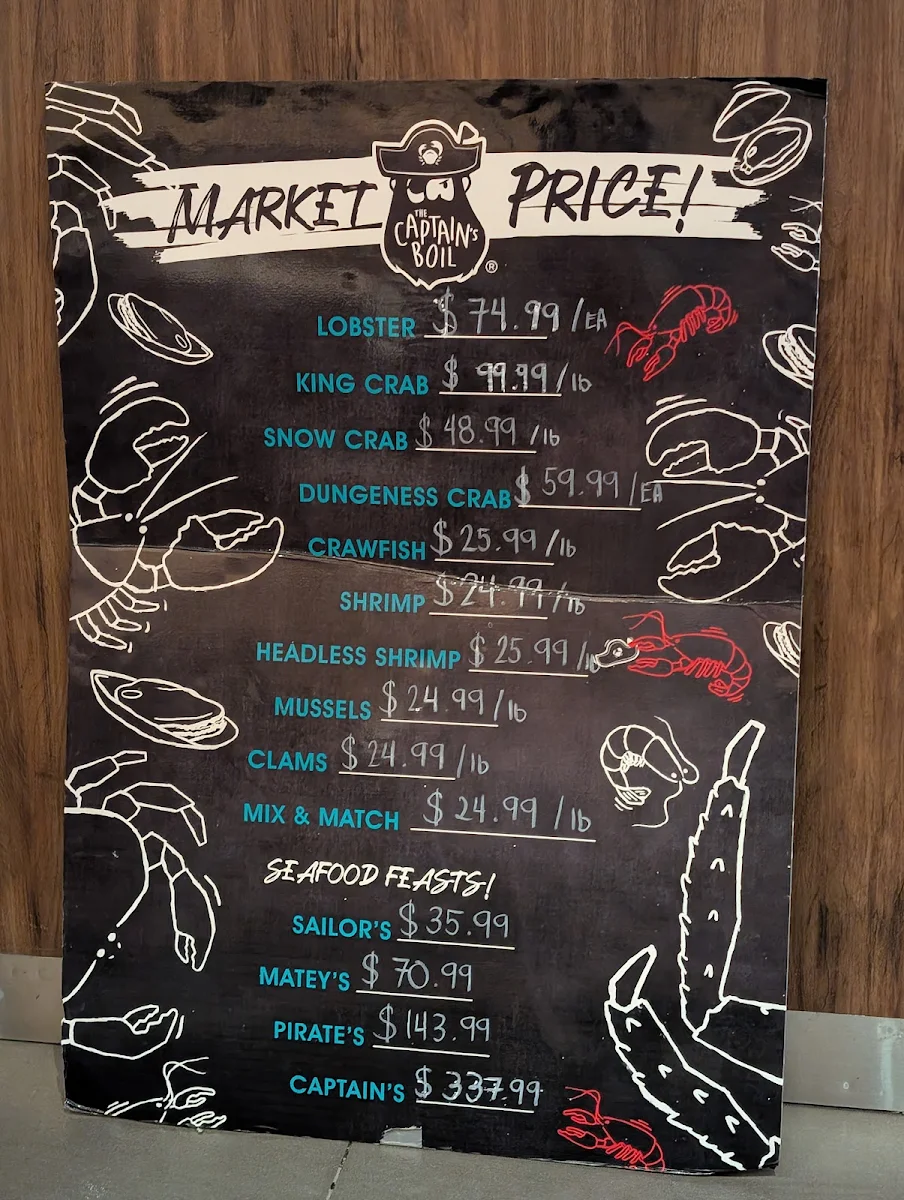 MARKET PRICE!
THE
CAPTAIN'S
BOIL
®
LOBSTER $ 74.99 /EA
KING CRAB $ 99.99 /lb
SNOW CRAB $ 48.99 /lb
DUNGENESS CRAB $ 59.99 /EA
CRAWFISH $ 25.99 /lb
SHRIMP $ 24.99 /lb
HEADLESS SHRIMP $ 25.99 /lb
MUSSELS $ 24.99 /lb
CLAMS $ 24.99 /lb
MIX & MATCH $ 24.99 /lb
SEAFOOD FEASTS!
SAILOR'S $ 35.99
MATEY'S $ 70.99
PIRATE'S $ 143.99
CAPTAIN'S $ 337.99